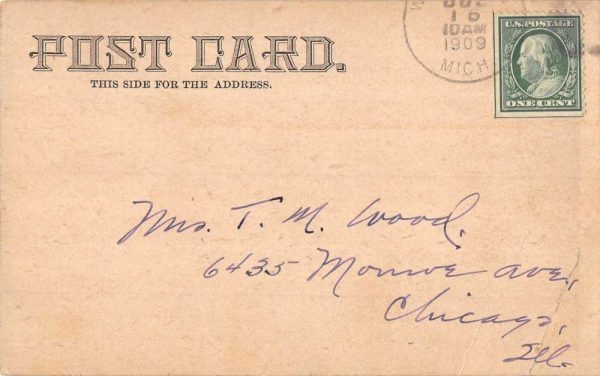 POST CARD.
THIS SIDE FOR THE ADDRESS.
10AM
1909
MICH
U.S. POSTAGE
ONE CENT
Mrs. T. M. Wood.
6435 Monroe Ave.,
Chicago,
Ill.